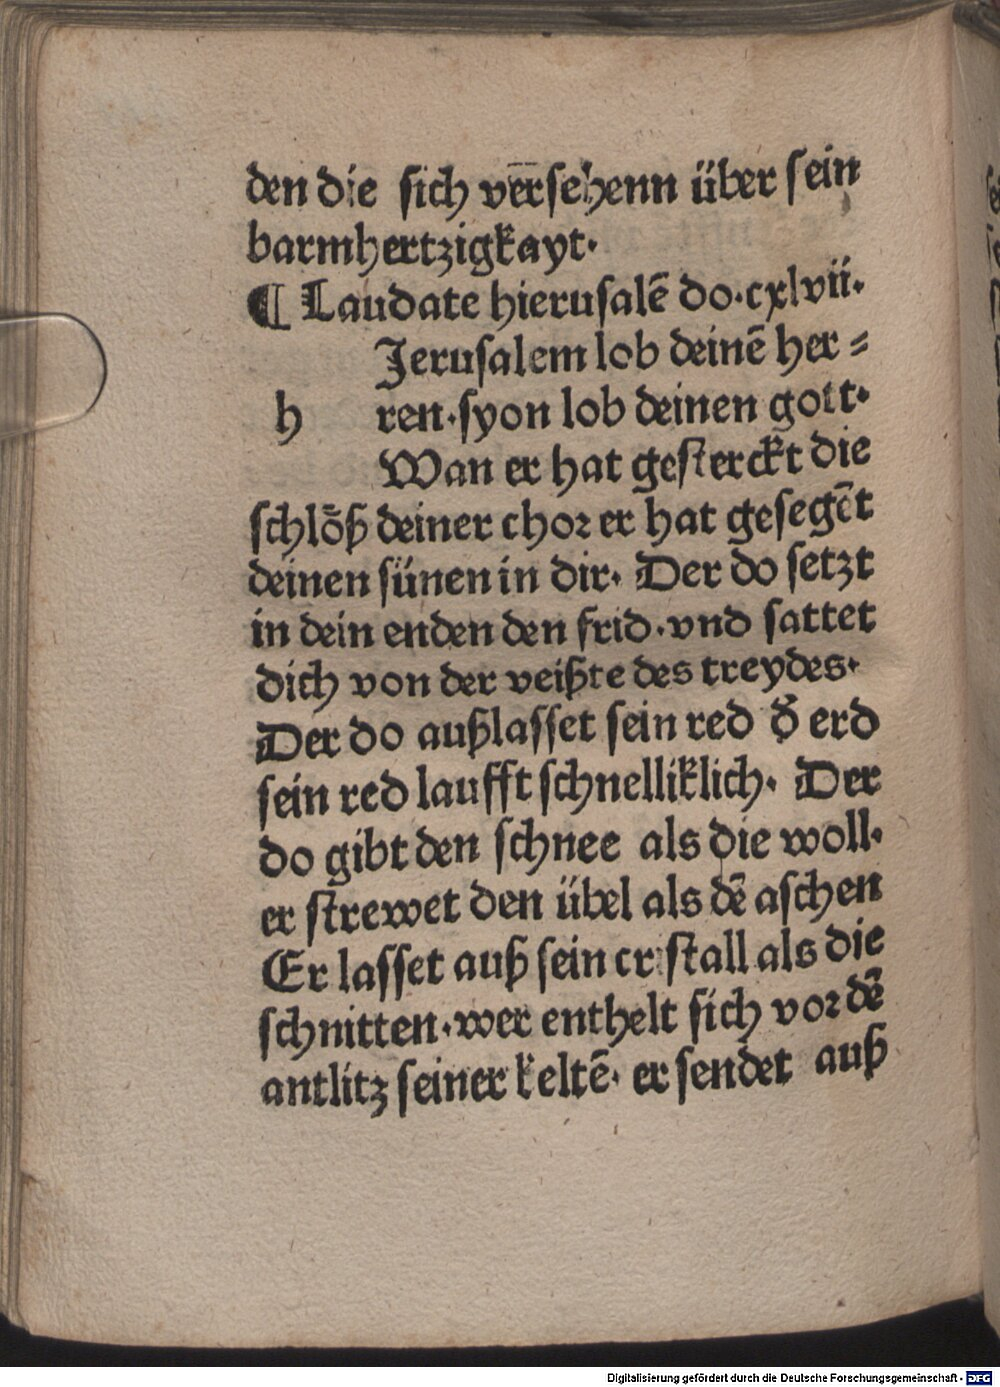 den die sich vēr̄sehenn über sein
barmhertzigkayt.
¶ Laudate hierusalē do.cxlvii.
Jerusalem lob deinē her⸗
h ren.syon lob deinen gott.
Wan er hat gesterckt die
schlöß deiner chor er hat gesegēt
deinen sünen in dir. Der do setzt
in dein enden den frid.vnd sattet
dich von der veißte des treydes.
Der do außlasset sein red d̄ erd
sein red laufft schnelliklich. Der
do gibt den schnee als die woll.
er strewet den übel als dē aschen
Er lasset auß sein cristall als die
schnitten.wer enthelt sich vor dē
antlitz seiner keltē. er sendet auß
Digitalisierung gefördert durch die Deutsche Forschungsgemeinschaft - DFG